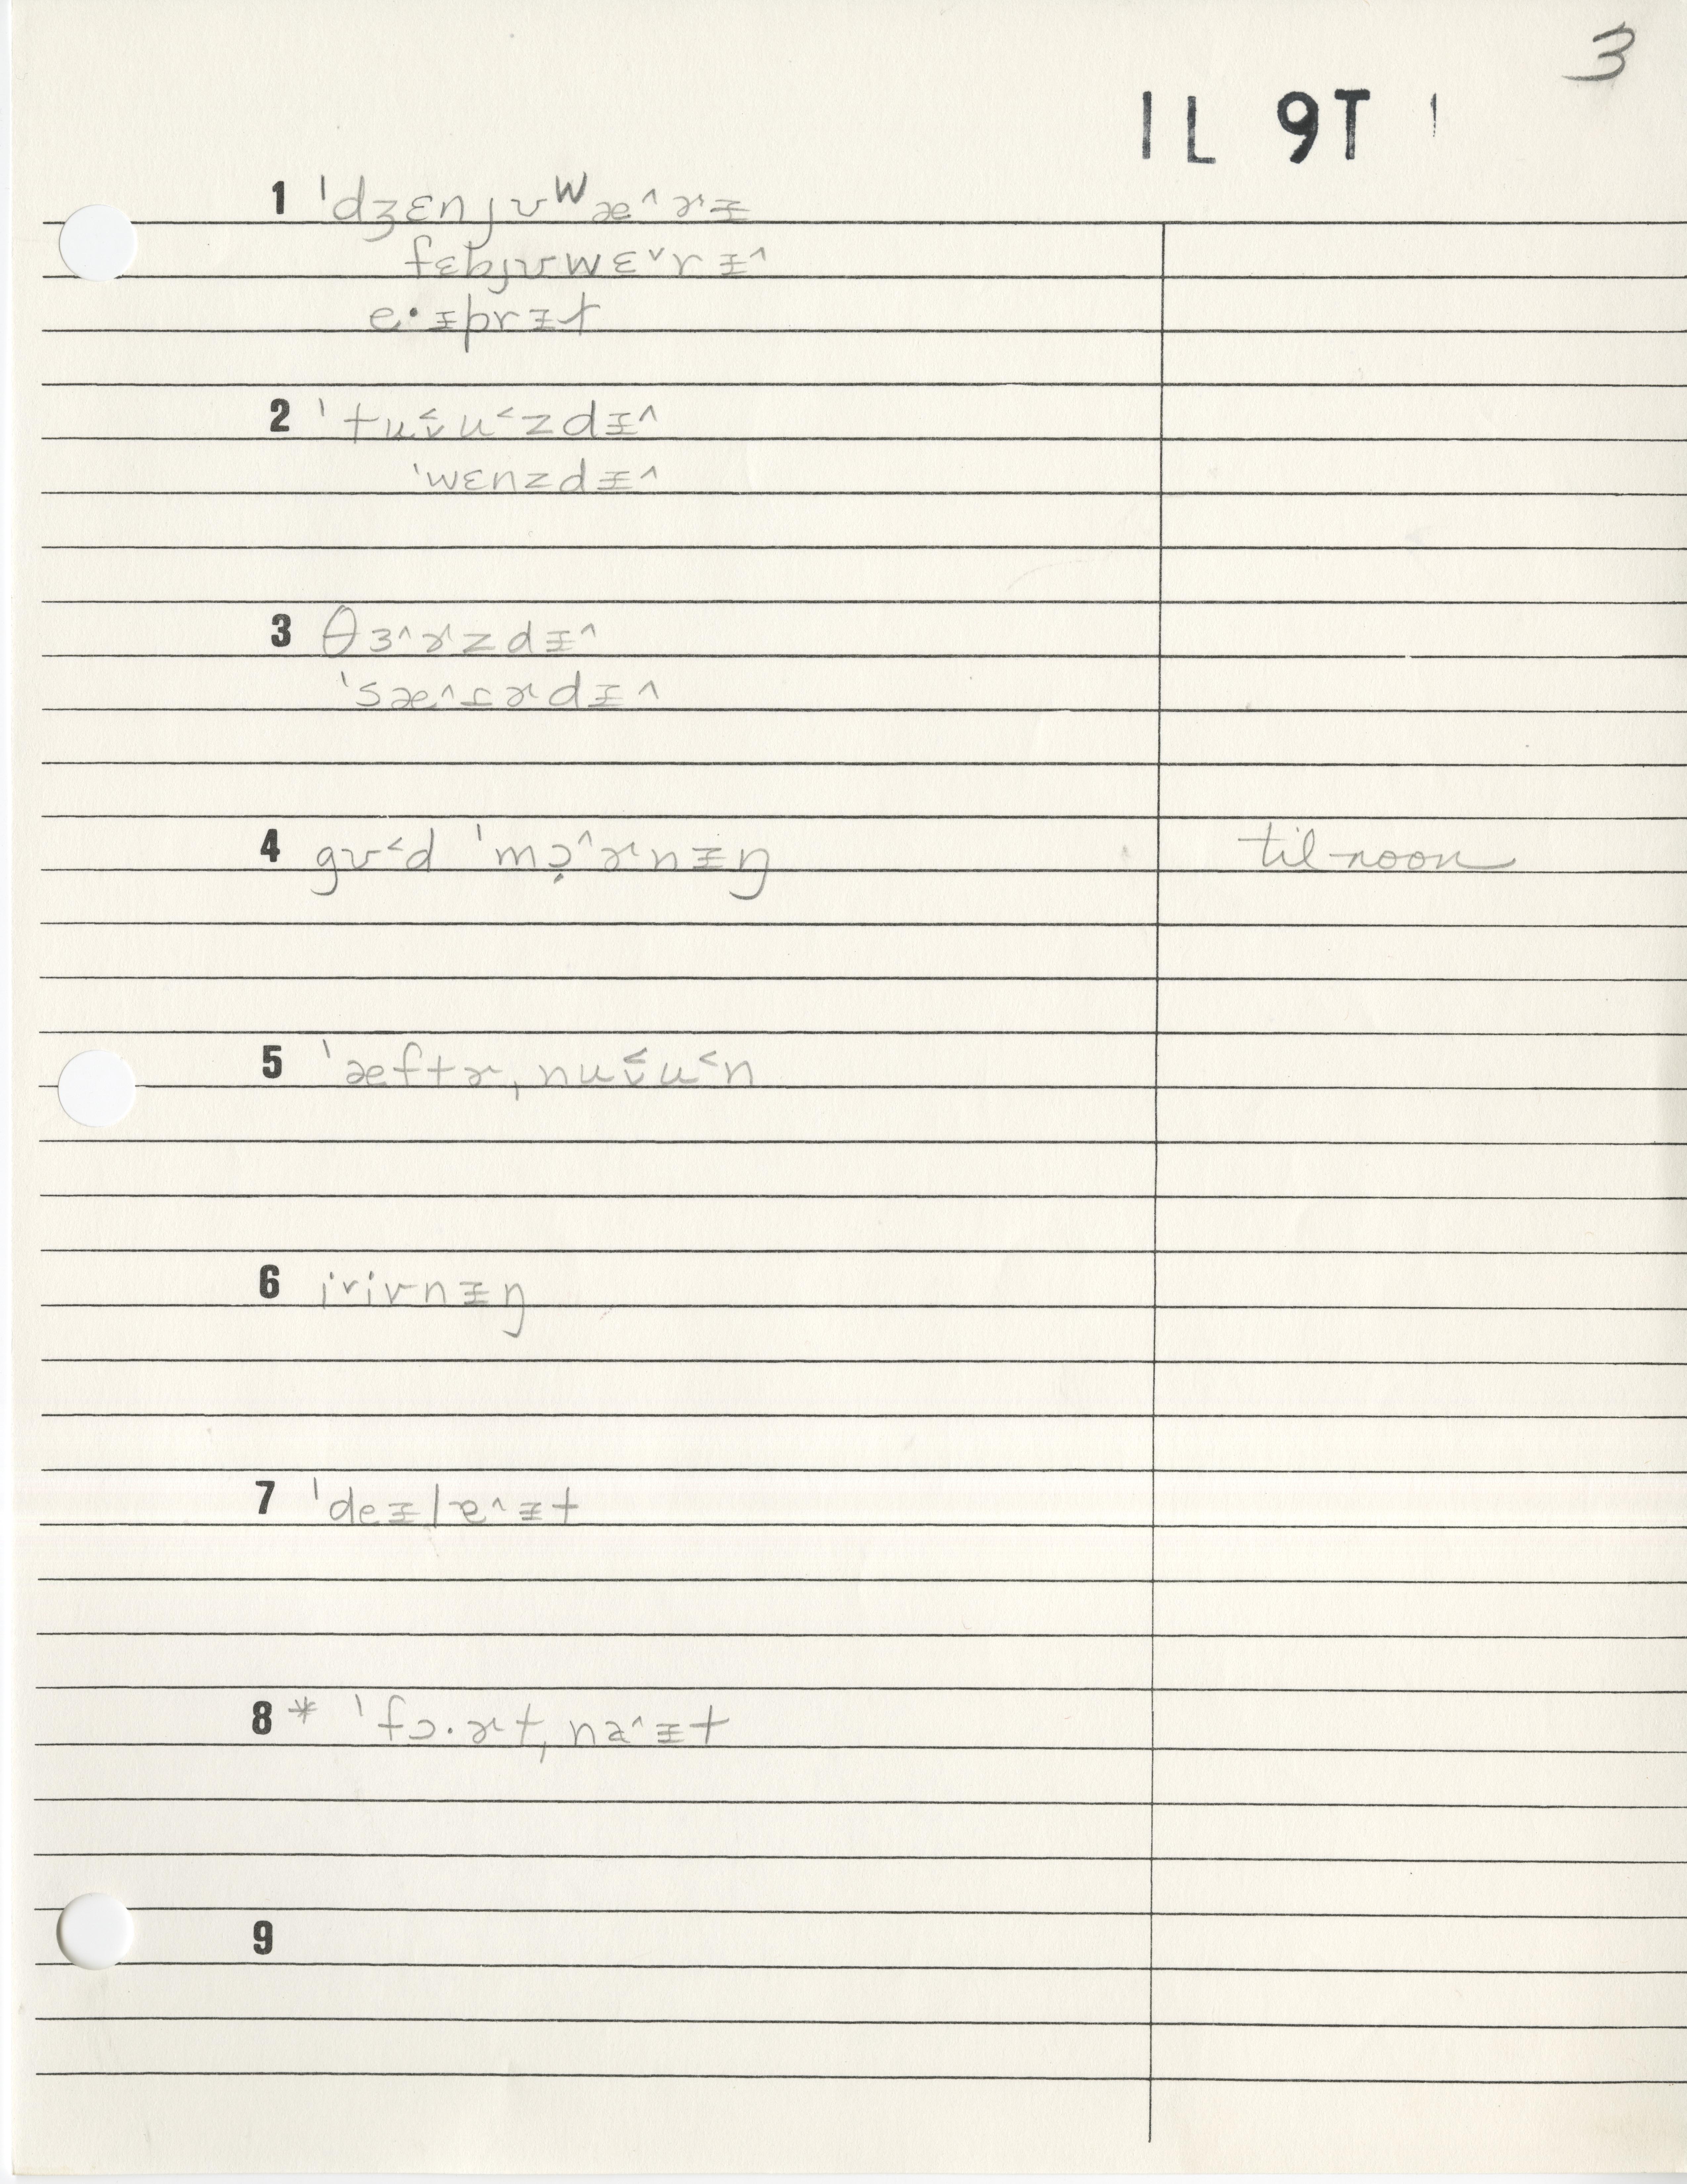 3
IL 9T
1 ˈdʒɛnjʊʷæ˄ɚɪ̵
fɛbjʊwɛ˅rɪ̵˄
e·ɪ̵prɪ̵ɫ
2 ˈtʉ˂˅ʉ˂zdɪ̵˄
ˈwɛnzdɪ̵˄
3 θɜ˄ɚzdɪ̵˄
ˈsæ˄ɾɚdɪ̵˄
4 gʊ˂d ˈmɔ̣˄ɚnɪ̵ŋ til noon
5 ˈæftɚˌnu˂˅u˂n
6 i˅ivnɪ̵ŋ
7 ˈdeɪ̵lɐ˄ɪ̵t
8 * ˈfɔ·ɚtˌna˄ɪ̵t
9